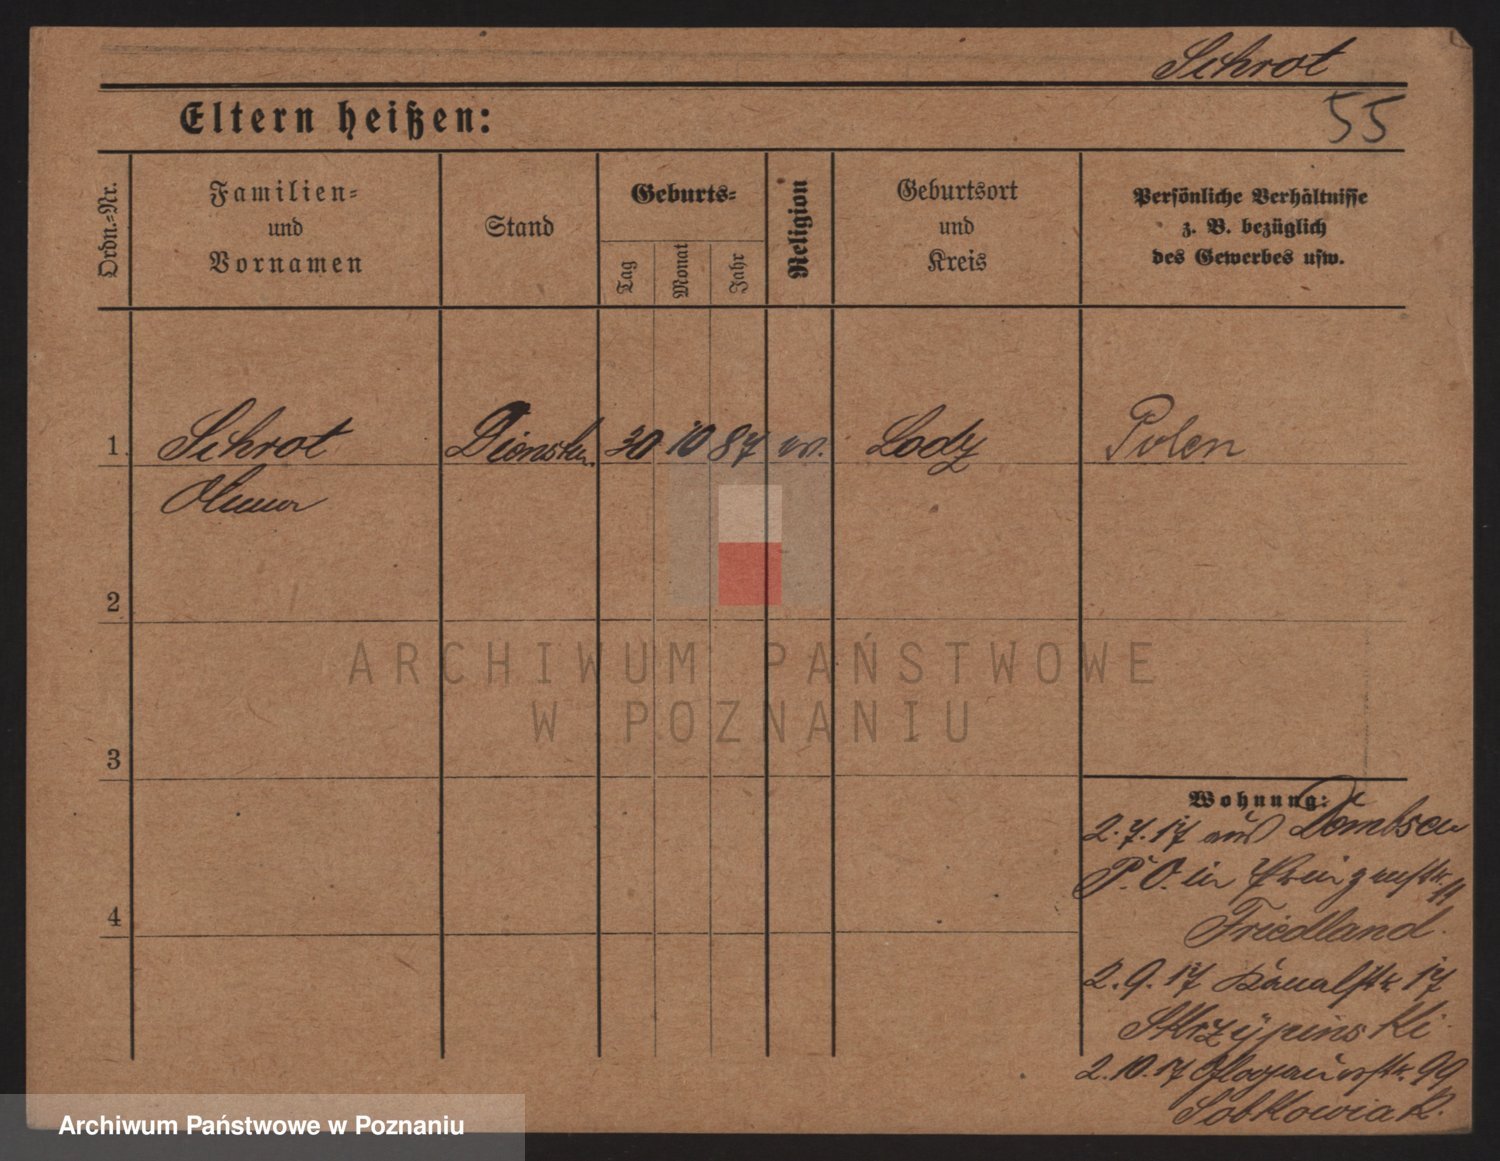 Schrot
Eltern heißen:
55
Ordn.-Nr.
Familien-
und
Vornamen
Stand
Geburts-
Tag
Monat
Jahr
Religion
Geburtsort
und
Kreis
Persönliche Verhältnisse
z. B. bezüglich
des Gewerbes usw.
1. Schrot Dienstm. 30 10 87 Lodz Polen
2
3
4
Wohnung:
2.7.17 aus Dombsen
P. O. in
Friedland.
2.9.17 Kanalstr. 17
Skrzypinski
2.10.17 Glogauerstr. 99
Sobkowiak.
ARCHIWUM PAŃSTWOWE
W POZNANIU
Archiwum Państwowe w Poznaniu